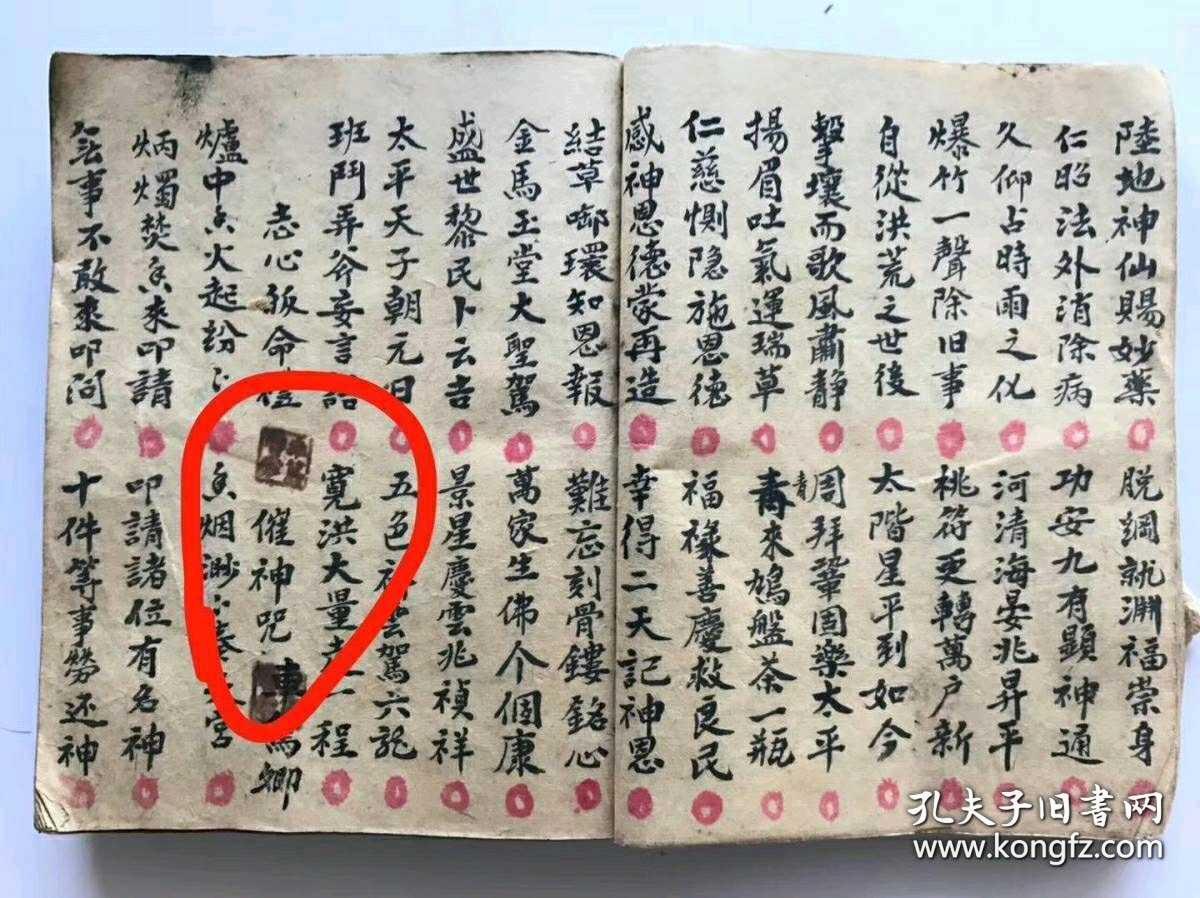 陸地神仙賜妙藥 脱綱就淵福崇身
仁昭法外消除病 功安九有顯神通
久仰占時雨之化 河清海晏兆昇平
爆竹一聲除旧事 桃符更轉萬户新
自從洪荒之世後 太階星平到如今
擊壤而歌風肅静 周拜鞏固樂太平
揚眉吐氣運瑞草 青來鳩盤茶一瓶
青
仁慈惻隐施恩德 福禄善慶救良民
感神恩德蒙再造 幸得二天記神恩
結草啣環知恩報 難忘刻骨鏤銘心
金馬玉堂大聖駕 萬家生佛个個康
盛世黎民卜云吉 景星慶雲兆禎祥
太平天子朝元日 五色 雲駕六龍
班門弄斧妄言語 寬洪大量 程
志心皈命禮 催神咒 車馬卿
爐中香火起纷〻 香烟渺〻 宮
炳燭焚香來叩請 叩請諸位有名神
無事不敢來叩问 十件等事勞还神
孔夫子旧书网
www.kongfz.com